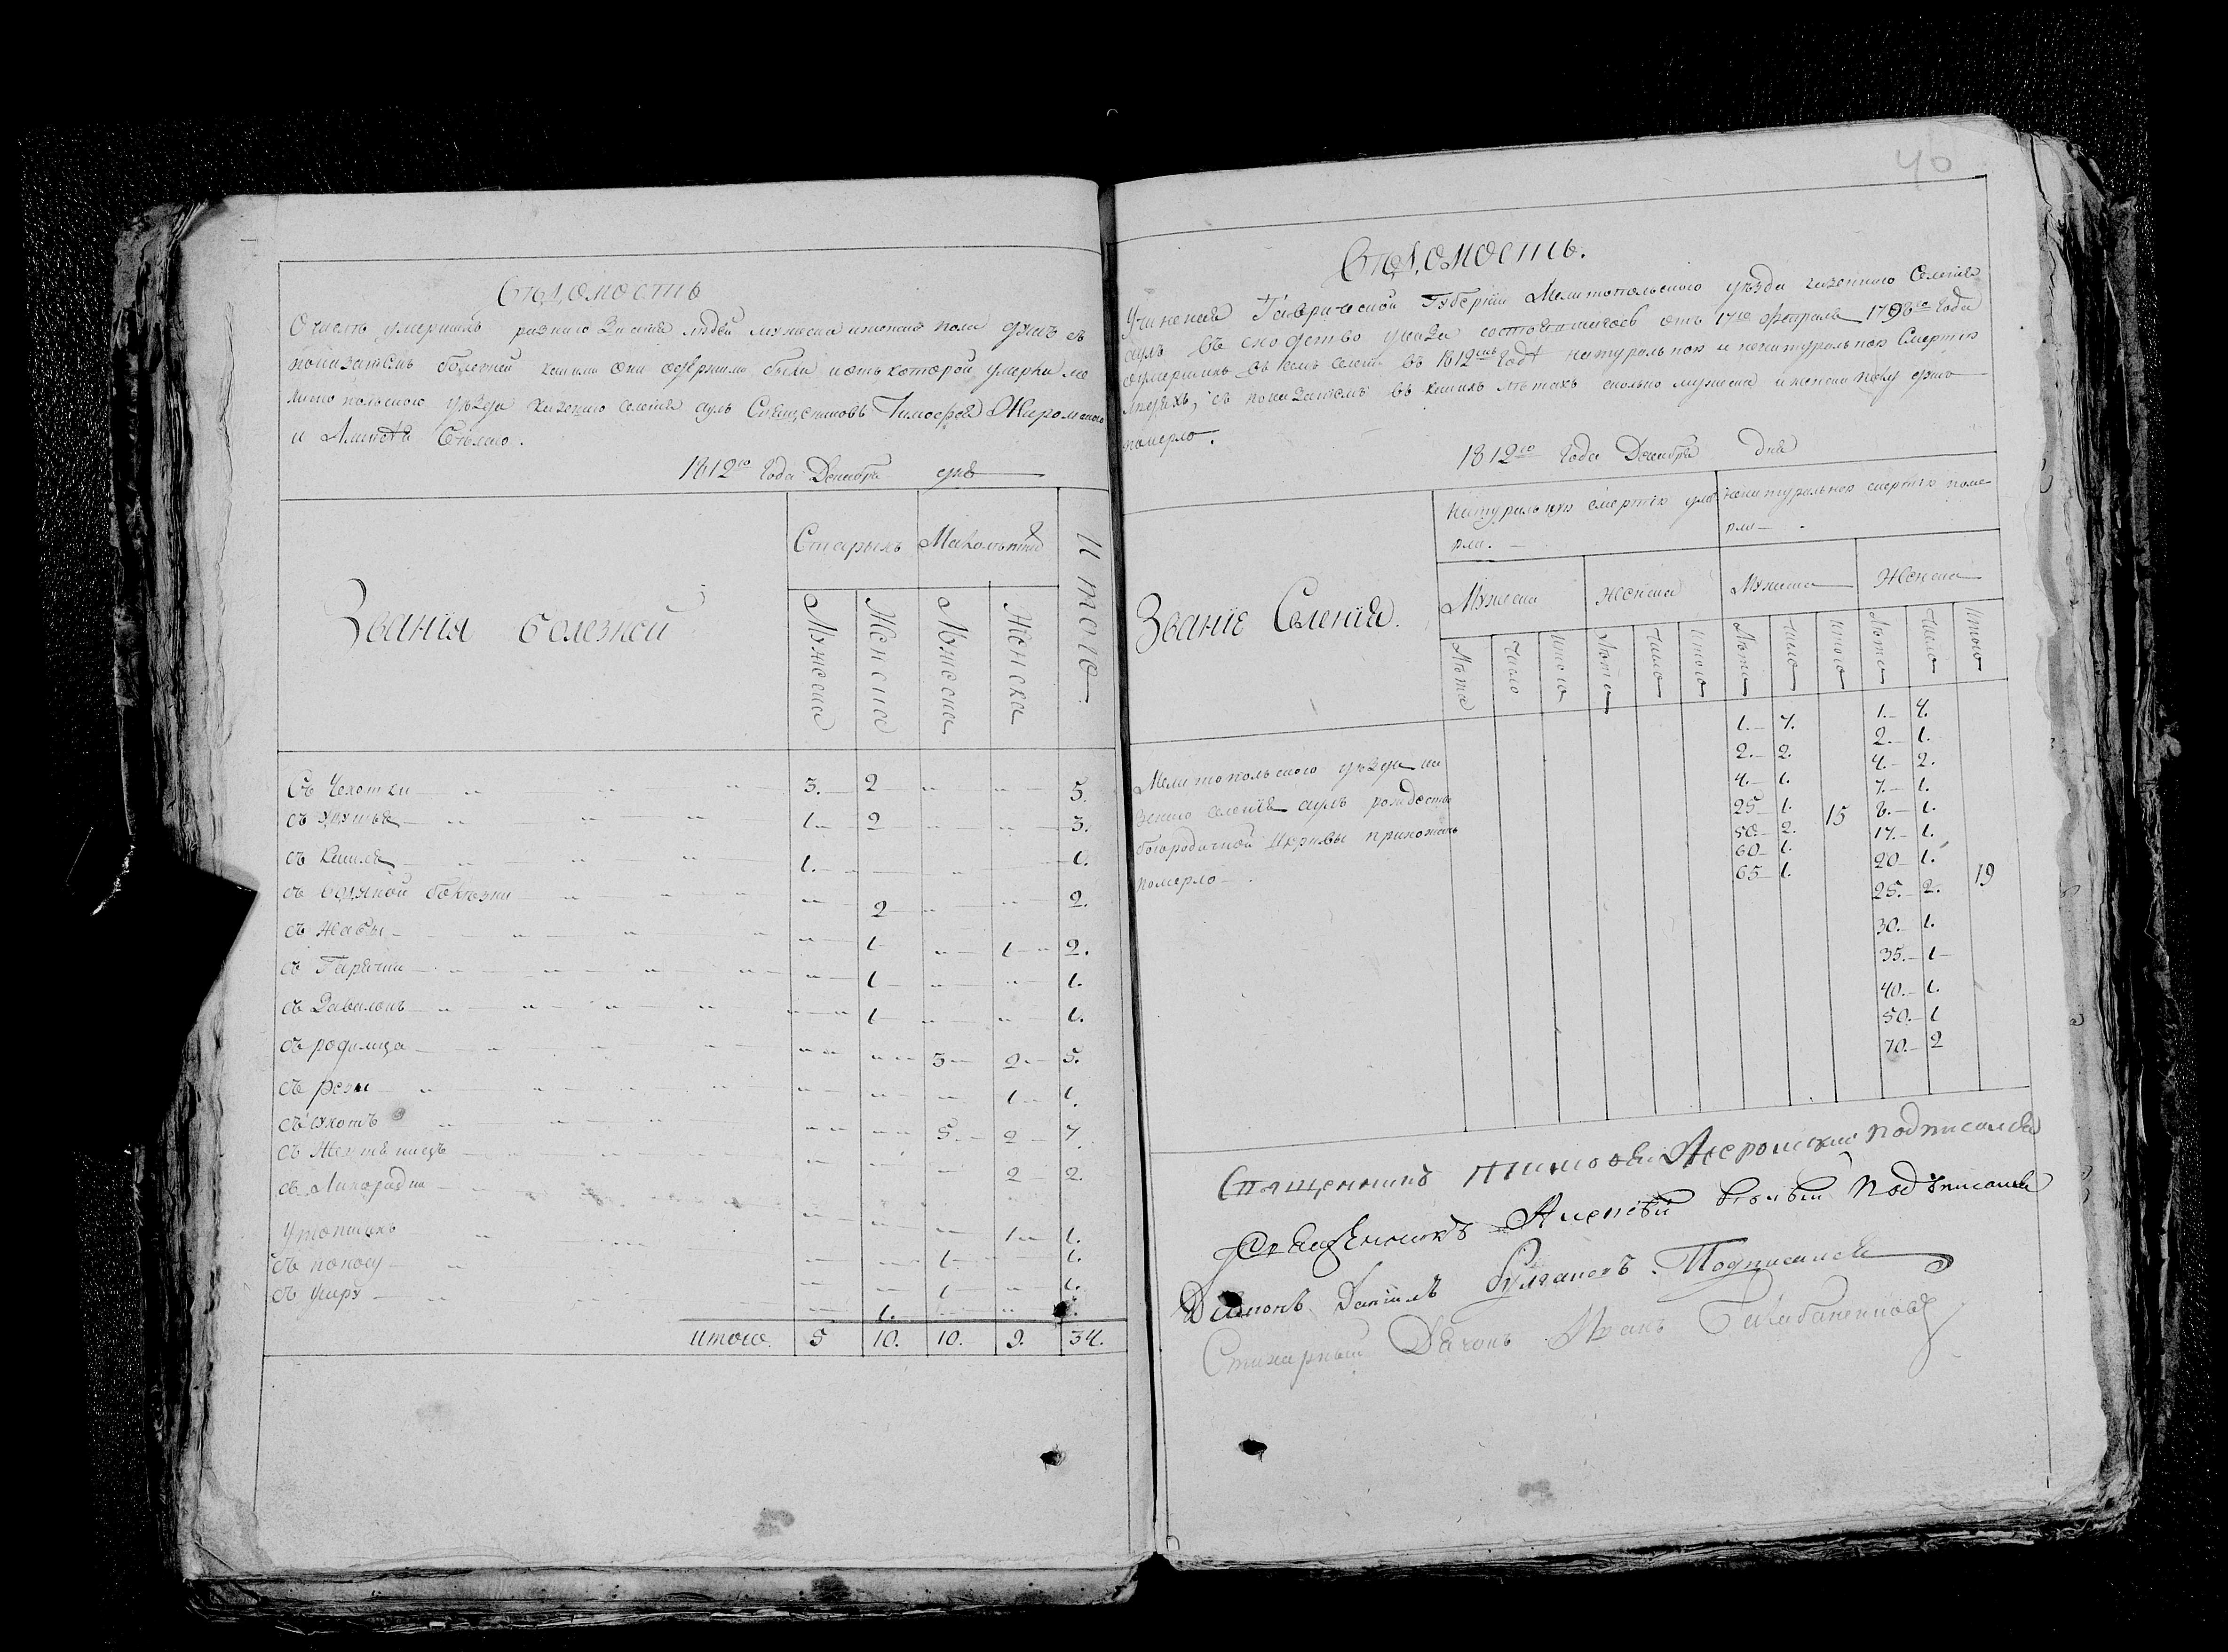 40
Вѣдомость
О числѣ умершихъ разнаго Званія людей мужеска и женска пола душъ съ
показаніемъ болезней какими они одержимы были и отъ которой умерли ме
литопольского уѣзда казенного селенія Священниковъ Тимофея Жиромского
и Алексѣя Бѣлого.
1812го Года Декабря дня
Званія болезней
Старыхъ Малолѣтнихъ Итого
Мужеска Женска Мужеска Женска
Съ Чехотки 3. 2 5.
съ удушья 1. 2 3.
съ Кашля 1. 1.
съ водяной болѣзни 2 2.
съ Жабы 1 1 2.
съ Горячки 1 1.
съ 1 1.
съ родимца 3 2 5.
съ резы 1 1.
съ сухотъ 5. 2 7.
съ 2 2.
съ Лихорадки 1 1.
Утопшихъ 1 1.
съ поносу 1 1.
съ 1.
итого 5 10. 10. 9. 34.
Вѣдомость.
Учиненная Таврической Губерніи Мелитопольского уѣзда казенного Селенія
въ сходство указа состоявшагось отъ 17го Февраля 1798го Года
о умершихъ въ семъ селеніи въ 1812мъ Годѣ натуральною и ненатуральною Смертію
людяхъ, съ показаніемъ въ какихъ лѣтахъ сколько мужеска и женска полу душъ
померло.
1812го Года Декабря дня
Званіе Селенія.
Натуральною смертію уме ненатуральною смертію поме
рли. рли.
Мужеска Женска Мужеска Женска
Лѣта Число Итого Лѣта Число Итого Лѣта Число Итого Лѣта Число Итого
Мелитопольского уѣзда ка
зенного селенія рождества
богородичной Церквы прихожанъ
померло
1. 7.
2. 2.
4. 1.
25 1.
50. 2.
60 1.
65 1.
15
1. 4.
2. 1.
4. 2.
7. 1.
8. 1.
17. 1.
20 1.
25. 2.
30. 1.
35. 1
40. 1.
50. 1
70. 2
19
Священникъ Тимофей Жеромский подписался
Священникъ Алексѣй Бѣлый Подписался
Диаконъ Даніилъ Подписался
Стихарный Дячокъ Иванъ